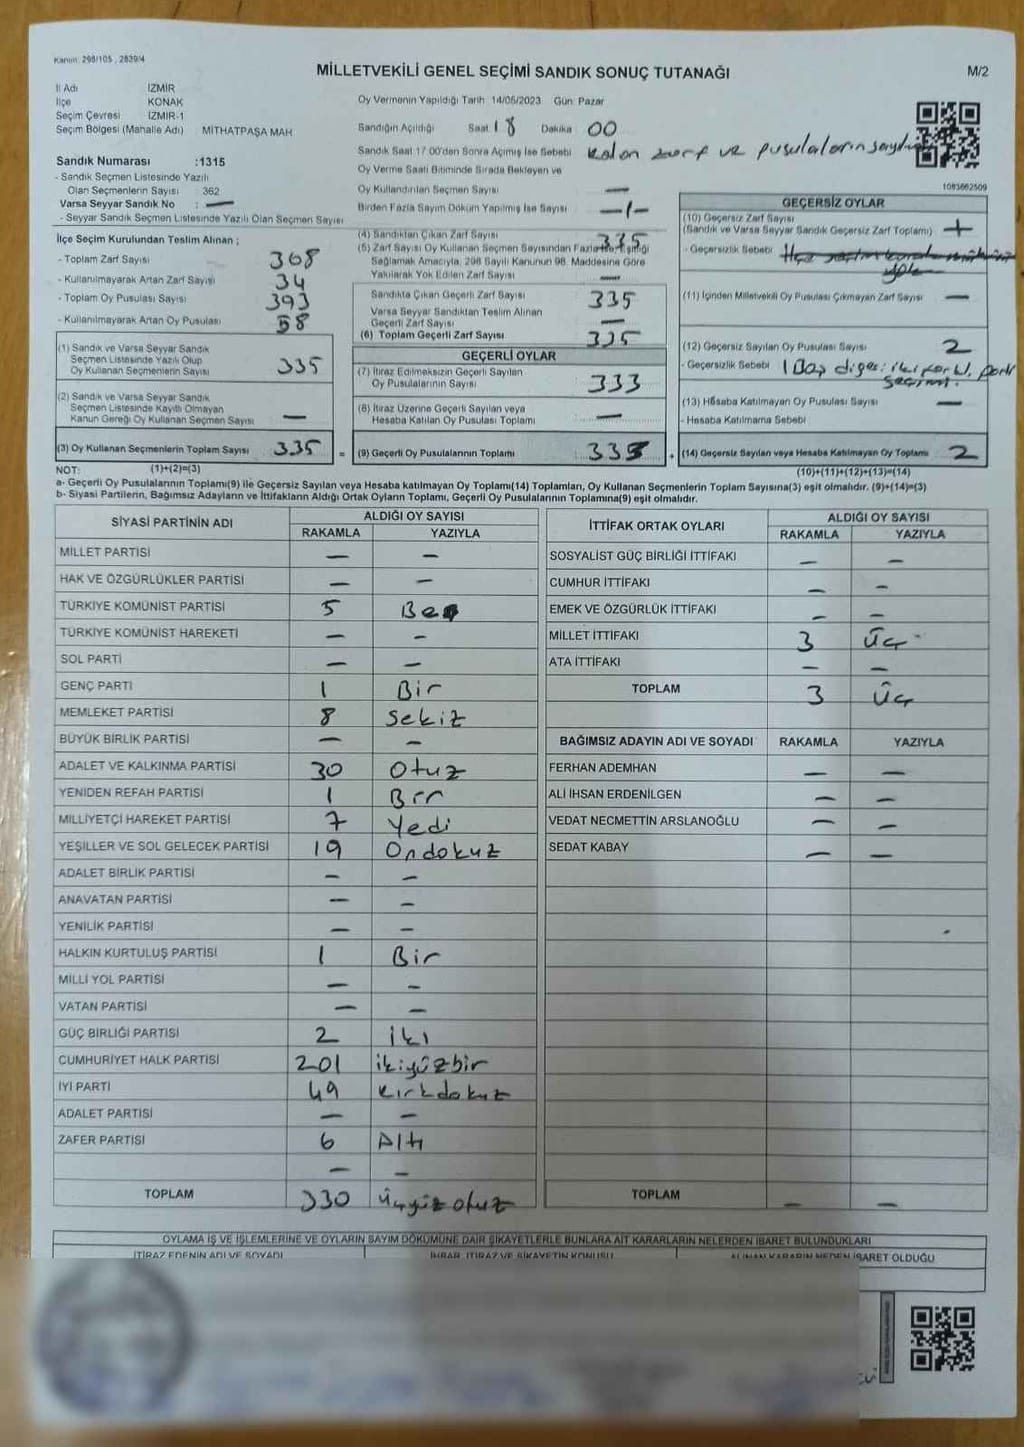 Kanun: 298/105, 2839/4
MİLLETVEKİLİ GENEL SEÇİMİ SANDIK SONUÇ TUTANAĞI
M/2
İl Adı İZMİR
İlçe KONAK
Seçim Çevresi İZMİR-1
Seçim Bölgesi (Mahalle Adı) MİTHATPAŞA MAH
Sandık Numarası :1315
- Sandık Seçmen Listesinde Yazılı
Olan Seçmenlerin Sayısı : 362
Varsa Seyyar Sandık No : —
- Seyyar Sandık Seçmen Listesinde Yazılı Olan Seçmen Sayısı
Oy Vermenin Yapıldığı Tarih 14/05/2023 Gün: Pazar
Sandığın Açıldığı Saat 18 Dakika 00
Sandık Saat 17.00'den Sonra Açılmış İse Sebebi Kalan zarf ve pusulaların sayılması
Oy Verme Saati Bitiminde Sırada Bekleyen ve
Oy Kullandırılan Seçmen Sayısı —
Birden Fazla Sayım Döküm Yapılmış İse Sayısı —1—
1083662509
İlçe Seçim Kurulundan Teslim Alınan ;
- Toplam Zarf Sayısı 368
- Kullanılmayarak Artan Zarf Sayısı 34
- Toplam Oy Pusulası Sayısı 393
- Kullanılmayarak Artan Oy Pusulası 58
(1) Sandık ve Varsa Seyyar Sandık
Seçmen Listesinde Yazılı Olup
Oy Kullanan Seçmenlerin Sayısı 335
(2) Sandık ve Varsa Seyyar Sandık
Seçmen Listesinde Kayıtlı Olmayan
Kanun Gereği Oy Kullanan Seçmen Sayısı —
(3) Oy Kullanan Seçmenlerin Toplam Sayısı 335 =
(4) Sandıktan Çıkan Zarf Sayısı 335
(5) Zarf Sayısı Oy Kullanan Seçmen Sayısından Fazla ise Eşitliği
Sağlamak Amacıyla, 298 Sayılı Kanunun 98. Maddesine Göre
Yakılarak Yok Edilen Zarf Sayısı —
Sandıkta Çıkan Geçerli Zarf Sayısı 335
Varsa Seyyar Sandıktan Teslim Alınan
Geçerli Zarf Sayısı —
(6) Toplam Geçerli Zarf Sayısı 335
GEÇERLİ OYLAR
(7) İtiraz Edilmeksizin Geçerli Sayılan
Oy Pusulalarının Sayısı : 333
(8) İtiraz Üzerine Geçerli Sayılan veya
Hesaba Katılan Oy Pusulası Toplamı : —
(9) Geçerli Oy Pusulalarının Toplamı : 333 +
GEÇERSİZ OYLAR
(10) Geçersiz Zarf Sayısı
(Sandık ve Varsa Seyyar Sandık Geçersiz Zarf Toplamı)
- Geçersizlik Sebebi
(11) İçinden Milletvekili Oy Pusulası Çıkmayan Zarf Sayısı —
(12) Geçersiz Sayılan Oy Pusulası Sayısı 2
- Geçersizlik Sebebi 1 Boş diğeri iki farklı parti
seçimi.
(13) Hesaba Katılmayan Oy Pusulası Sayısı —
- Hesaba Katılmama Sebebi
(14) Geçersiz Sayılan veya Hesaba Katılmayan Oy Toplamı 2
NOT: (1)+(2)=(3)
(10)+(11)+(12)+(13)=(14)
a- Geçerli Oy Pusulalarının Toplamı(9) ile Geçersiz Sayılan veya Hesaba katılmayan Oy Toplamı(14) Toplamları, Oy Kullanan Seçmenlerin Toplam Sayısına(3) eşit olmalıdır. (9)+(14)=(3)
b- Siyasi Partilerin, Bağımsız Adayların ve İttifakların Aldığı Ortak Oyların Toplamı, Geçerli Oy Pusulalarının Toplamına(9) eşit olmalıdır.
SİYASİ PARTİNİN ADI ALDIĞI OY SAYISI
RAKAMLA YAZIYLA
MİLLET PARTİSİ — —
HAK VE ÖZGÜRLÜKLER PARTİSİ — —
TÜRKİYE KOMÜNİST PARTİSİ 5 Beş
TÜRKİYE KOMÜNİST HAREKETİ — —
SOL PARTİ — —
GENÇ PARTİ 1 Bir
MEMLEKET PARTİSİ 8 Sekiz
BÜYÜK BİRLİK PARTİSİ — —
ADALET VE KALKINMA PARTİSİ 30 Otuz
YENİDEN REFAH PARTİSİ 1 Bir
MİLLİYETÇİ HAREKET PARTİSİ 7 Yedi
YEŞİLLER VE SOL GELECEK PARTİSİ 19 Ondokuz
ADALET BİRLİK PARTİSİ — —
ANAVATAN PARTİSİ — —
YENİLİK PARTİSİ — —
HALKIN KURTULUŞ PARTİSİ 1 Bir
MİLLİ YOL PARTİSİ — —
VATAN PARTİSİ — —
GÜÇ BİRLİĞİ PARTİSİ 2 İki
CUMHURİYET HALK PARTİSİ 201 ikiyüzbir
İYİ PARTİ 49 Kırkdokuz
ADALET PARTİSİ — —
ZAFER PARTİSİ 6 Altı
— —
TOPLAM 330 Üçyüz otuz
İTTİFAK ORTAK OYLARI ALDIĞI OY SAYISI
RAKAMLA YAZIYLA
SOSYALİST GÜÇ BİRLİĞİ İTTİFAKI — —
CUMHUR İTTİFAKI — —
EMEK VE ÖZGÜRLÜK İTTİFAKI — —
MİLLET İTTİFAKI 3 Üç
ATA İTTİFAKI — —
TOPLAM 3 Üç
BAĞIMSIZ ADAYIN ADI VE SOYADI RAKAMLA YAZIYLA
FERHAN ADEMHAN — —
ALİ İHSAN ERDENİLGEN — —
VEDAT NECMETTİN ARSLANOĞLU — —
SEDAT KABAY — —
TOPLAM — —
OYLAMA İŞ VE İŞLEMLERİNE VE OYLARIN SAYIM DÖKÜMÜNE DAİR ŞİKAYETLERLE BUNLARA AİT KARARLARIN NELERDEN İBARET BULUNDUKLARI
İTİRAZ EDENİN ADI VE SOYADI İHBAR, İTİRAZ VE ŞİKAYETİN KONUSU ALINAN KARARIN NEDEN İBARET OLDUĞU